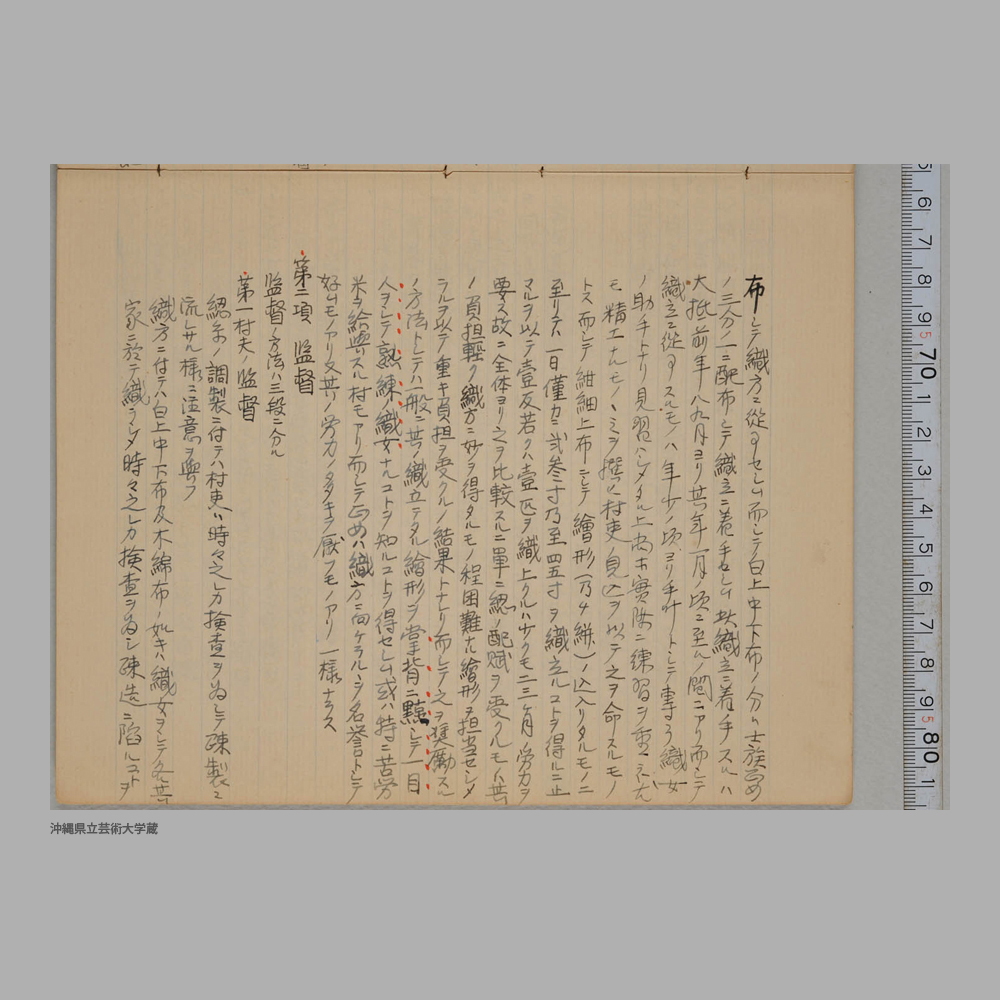 布シテ織方ニ從事セシム而シテ白上中下布ノ分ハ士族百姓
ノ三分ノ一ニ配布シテ織立ニ着手セシム此織立ニ着手スルハ
大抵前年八九月ヨリ其年一月ノ頃ニ至ルノ間ニアリ而シテ
織立ニ從事スルモノハ年少ノ頃ヨリ手叶トシテ專ラ織女
ノ助手トナリ見習ヒタル上尚ホ實際ニ練習ヲ重ネ尤
モ精工ナルモノヽミヲ撰ヒ村吏ノ見込ヲ以テ之ヲ命スルモノ
トス而シテ紺細上布ニシテ繪形（乃チ絣）ノ込入リタルモノニ
至リテハ一日僅カニ弍叁寸乃至四五寸ヲ織立ルコトヲ得ルニ止
マルヲ以テ壹反若クハ壹匹ヲ織上クルハ少クモ二三ケ月ノ労力ヲ
要ス故ニ全体ヨリ之ヲ比較スルニ單ニ總ノ配賦ヲ受クルモノハ其
ノ負担輕ク織方ニ妙ヲ得タルモノ程困難ナル繪形ヲ担当セシメ
ラルヽヲ以テ重キ負担ヲ受クルノ結果トナレリ而シテ之ヲ奬勵スル
ノ方法トシテハ一般ニ其ノ織立テタル繪形ヲ掌背ニ黥シテ一目
人ヲシテ熟練織女ナルコトヲ知ルコトヲ得セシム或ハ特ニ苦労
米ヲ給與スル村モアリ而シテ織方ニ向ケラルヽヲ名誉トシテ
好ムモノアリ又其ノ労力ノ多キヲ厭フモノアリ一様ナラス
第二項 監督
監督ノ方法ハ三段ニ分ル
第一村夫ノ監督
總糸ノ調製ニ付テハ村吏ハ時々之レカ檢査ヲ為シテ疎製ニ
流レサル様ニ注意ヲ與フ
織方ニ付テハ白上中下布及木綿布ノ如キハ織女ヲシテ各其
家ニ於テ織ラシメ時々之レカ檢査ヲ為シ疎造ニ陷ルコトヲ
5 6 7 8 9 70 1 2 3 4 5 6 7 8 9 80 1
沖縄県立芸術大学蔵